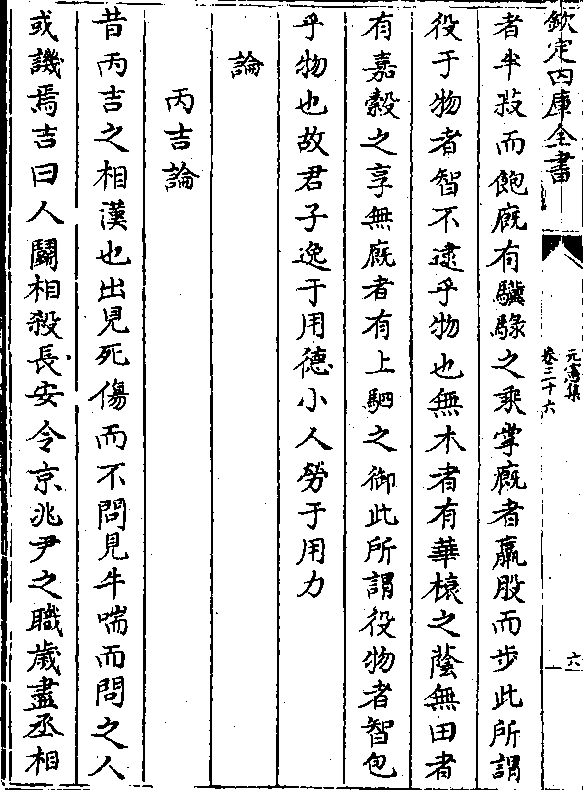 欽定四庫全書
元憲集
卷三十六
六
者半菽而飽廐有驥騄之乘掌廐者羸股而步此所謂
役于物者智不逮乎物也無木者有華榱之蔭無田者
有嘉穀之享無廐者有上駟之御此所謂役物者智包
乎物也故君子逸于用德小人勞于用力
論
丙吉論
昔丙吉之相漢也出見死傷而不問見牛喘而問之人
或譏焉吉曰人鬭相殺長安令京兆尹之職歲盡丞相